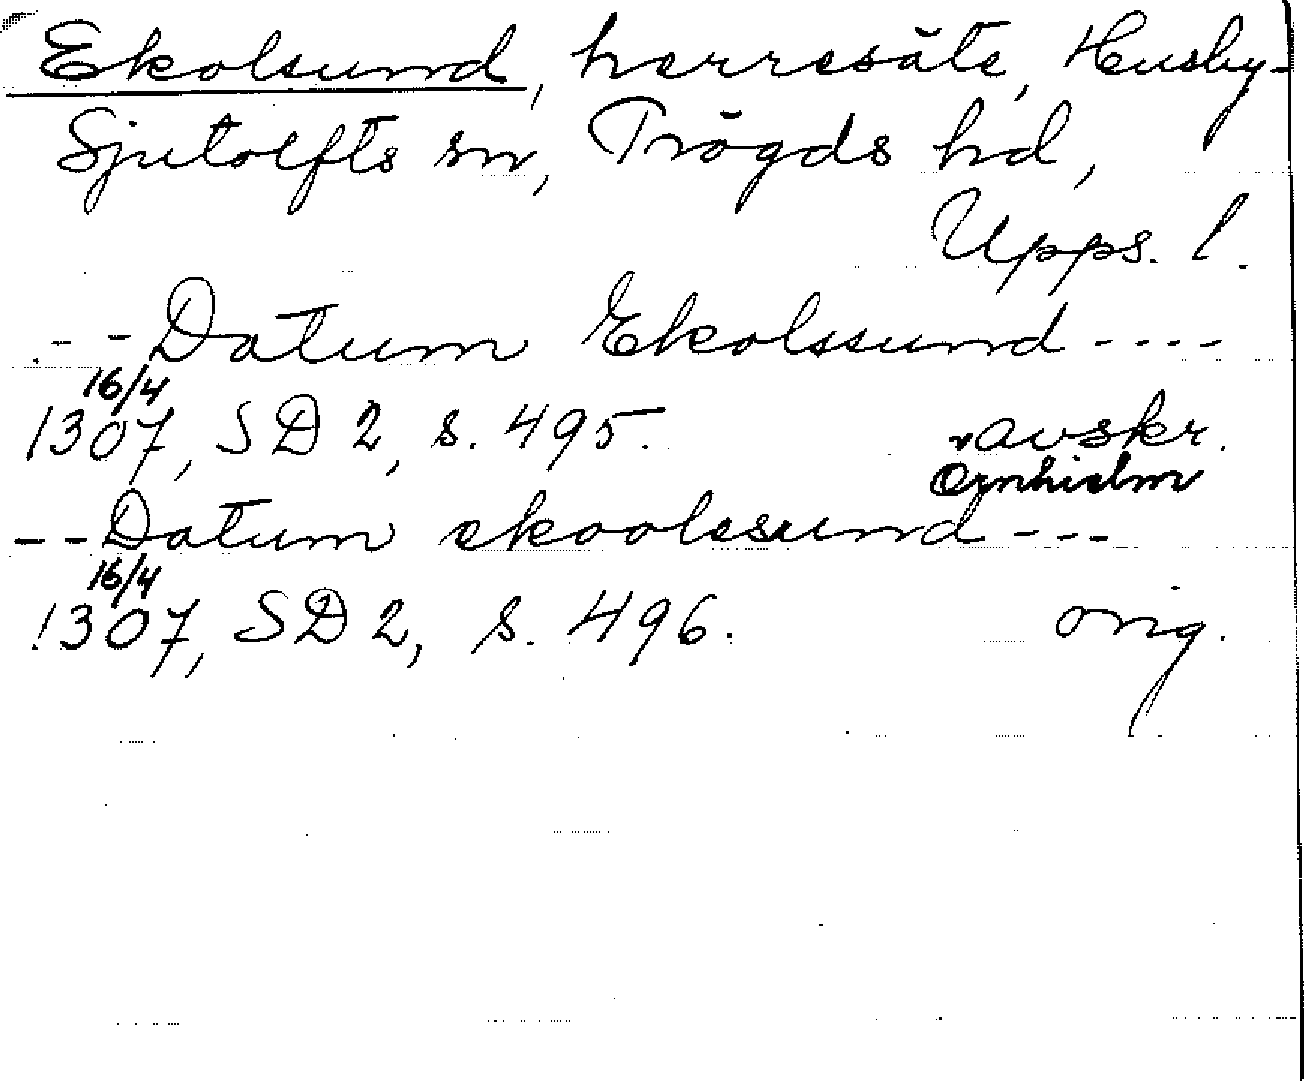 Ekolsund, herresäte, Husby-
Sjutolfts sn, Trögds hd,
Upps. l.
- - Datum Ekolssund - - - -
16/4
1307, SD 2, s. 495. avskr.
Örnhielm
- - Datum ekoolssund - - -
16/4
1307, SD 2, s. 496. orig.